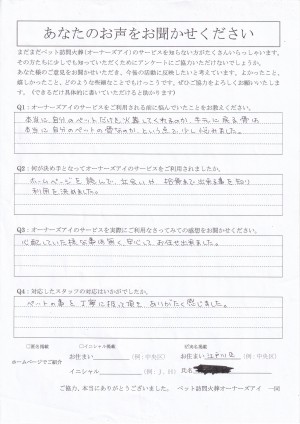 あなたのお声をお聞かせください
まだまだペット訪問火葬(オーナーズアイ)のサービスを知らない方がたくさんいらっしゃいます。
その方たちに少しでも知っていただくためにアンケートにご協力いただけないでしょうか。
あなた様のご意見をお聞かせいただき、今後の活動に反映したいと考えています。よかったこと、
嬉しかったこと、どのような些細なことでもけっこうです。ぜひご協力をよろしくお願いいたします。
(できるだけ具体的に書いていただけると助かります)
Q1:オーナーズアイのサービスをご利用される前に悩んでいたことをお教えください。
本当に自分のペットだけを火葬してくれるのか、手元に戻る骨は
本当に自分のペットの骨なのか、という点で、少し悩みました。
Q2:何が決め手となってオーナーズアイのサービスをご利用されましたか。
ホームページを読んで、立会いや拾骨まで出来る事を知り
利用を決めました。
Q3:オーナーズアイのサービスを実際にご利用なさってみての感想をお聞かせください。
心配していた様な事は無く、安心してお任せ出来ました。
Q4:対応したスタッフの対応はいかがでしたか。
ペットの事を丁寧に扱って頂き、ありがたく感じました。
□匿名掲載 □イニシャル掲載 ☑実名掲載
※ホームページでご紹介
お住まい (例:中央区) お住まい 江戸川区 (例:中央区)
イニシャル (例:J.H) 氏名
ご協力、本当にありがとうございました。 ペット訪問火葬オーナーズアイ 一同